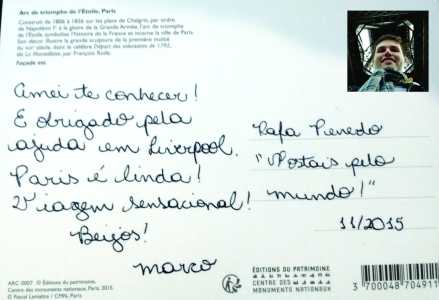 Arc de triomphe de l'Étoile, Paris
Construit de 1806 à 1836 sur les plans de Chalgrin, par ordre
de Napoléon Iᵉʳ à la gloire de la Grande Armée, l'arc de triomphe
de l'Étoile symbolise l'histoire de la France et incarne la ville de Paris.
Son décor illustre la grande sculpture de la première moitié
du XIXᵉ siècle, dont le célèbre Départ des volontaires de 1792,
ou La Marseillaise, par François Rude.
Façade est
Amei te conhecer!
E obrigado pela
ajuda em Liverpool.
Paris é linda!
Viagem sensacional!
Beijos!
Marco
Rafa Penedo
"Postais pelo
mundo!"
11/2015
ARC 0007 © Éditions du patrimoine,
Centre des monuments nationaux, Paris 2015
© Pascal Lemaître / CMN, Paris
ÉDITIONS DU PATRIMOINE
CENTRE DES
MONUMENTS NATIONAUX
3 700048 704911